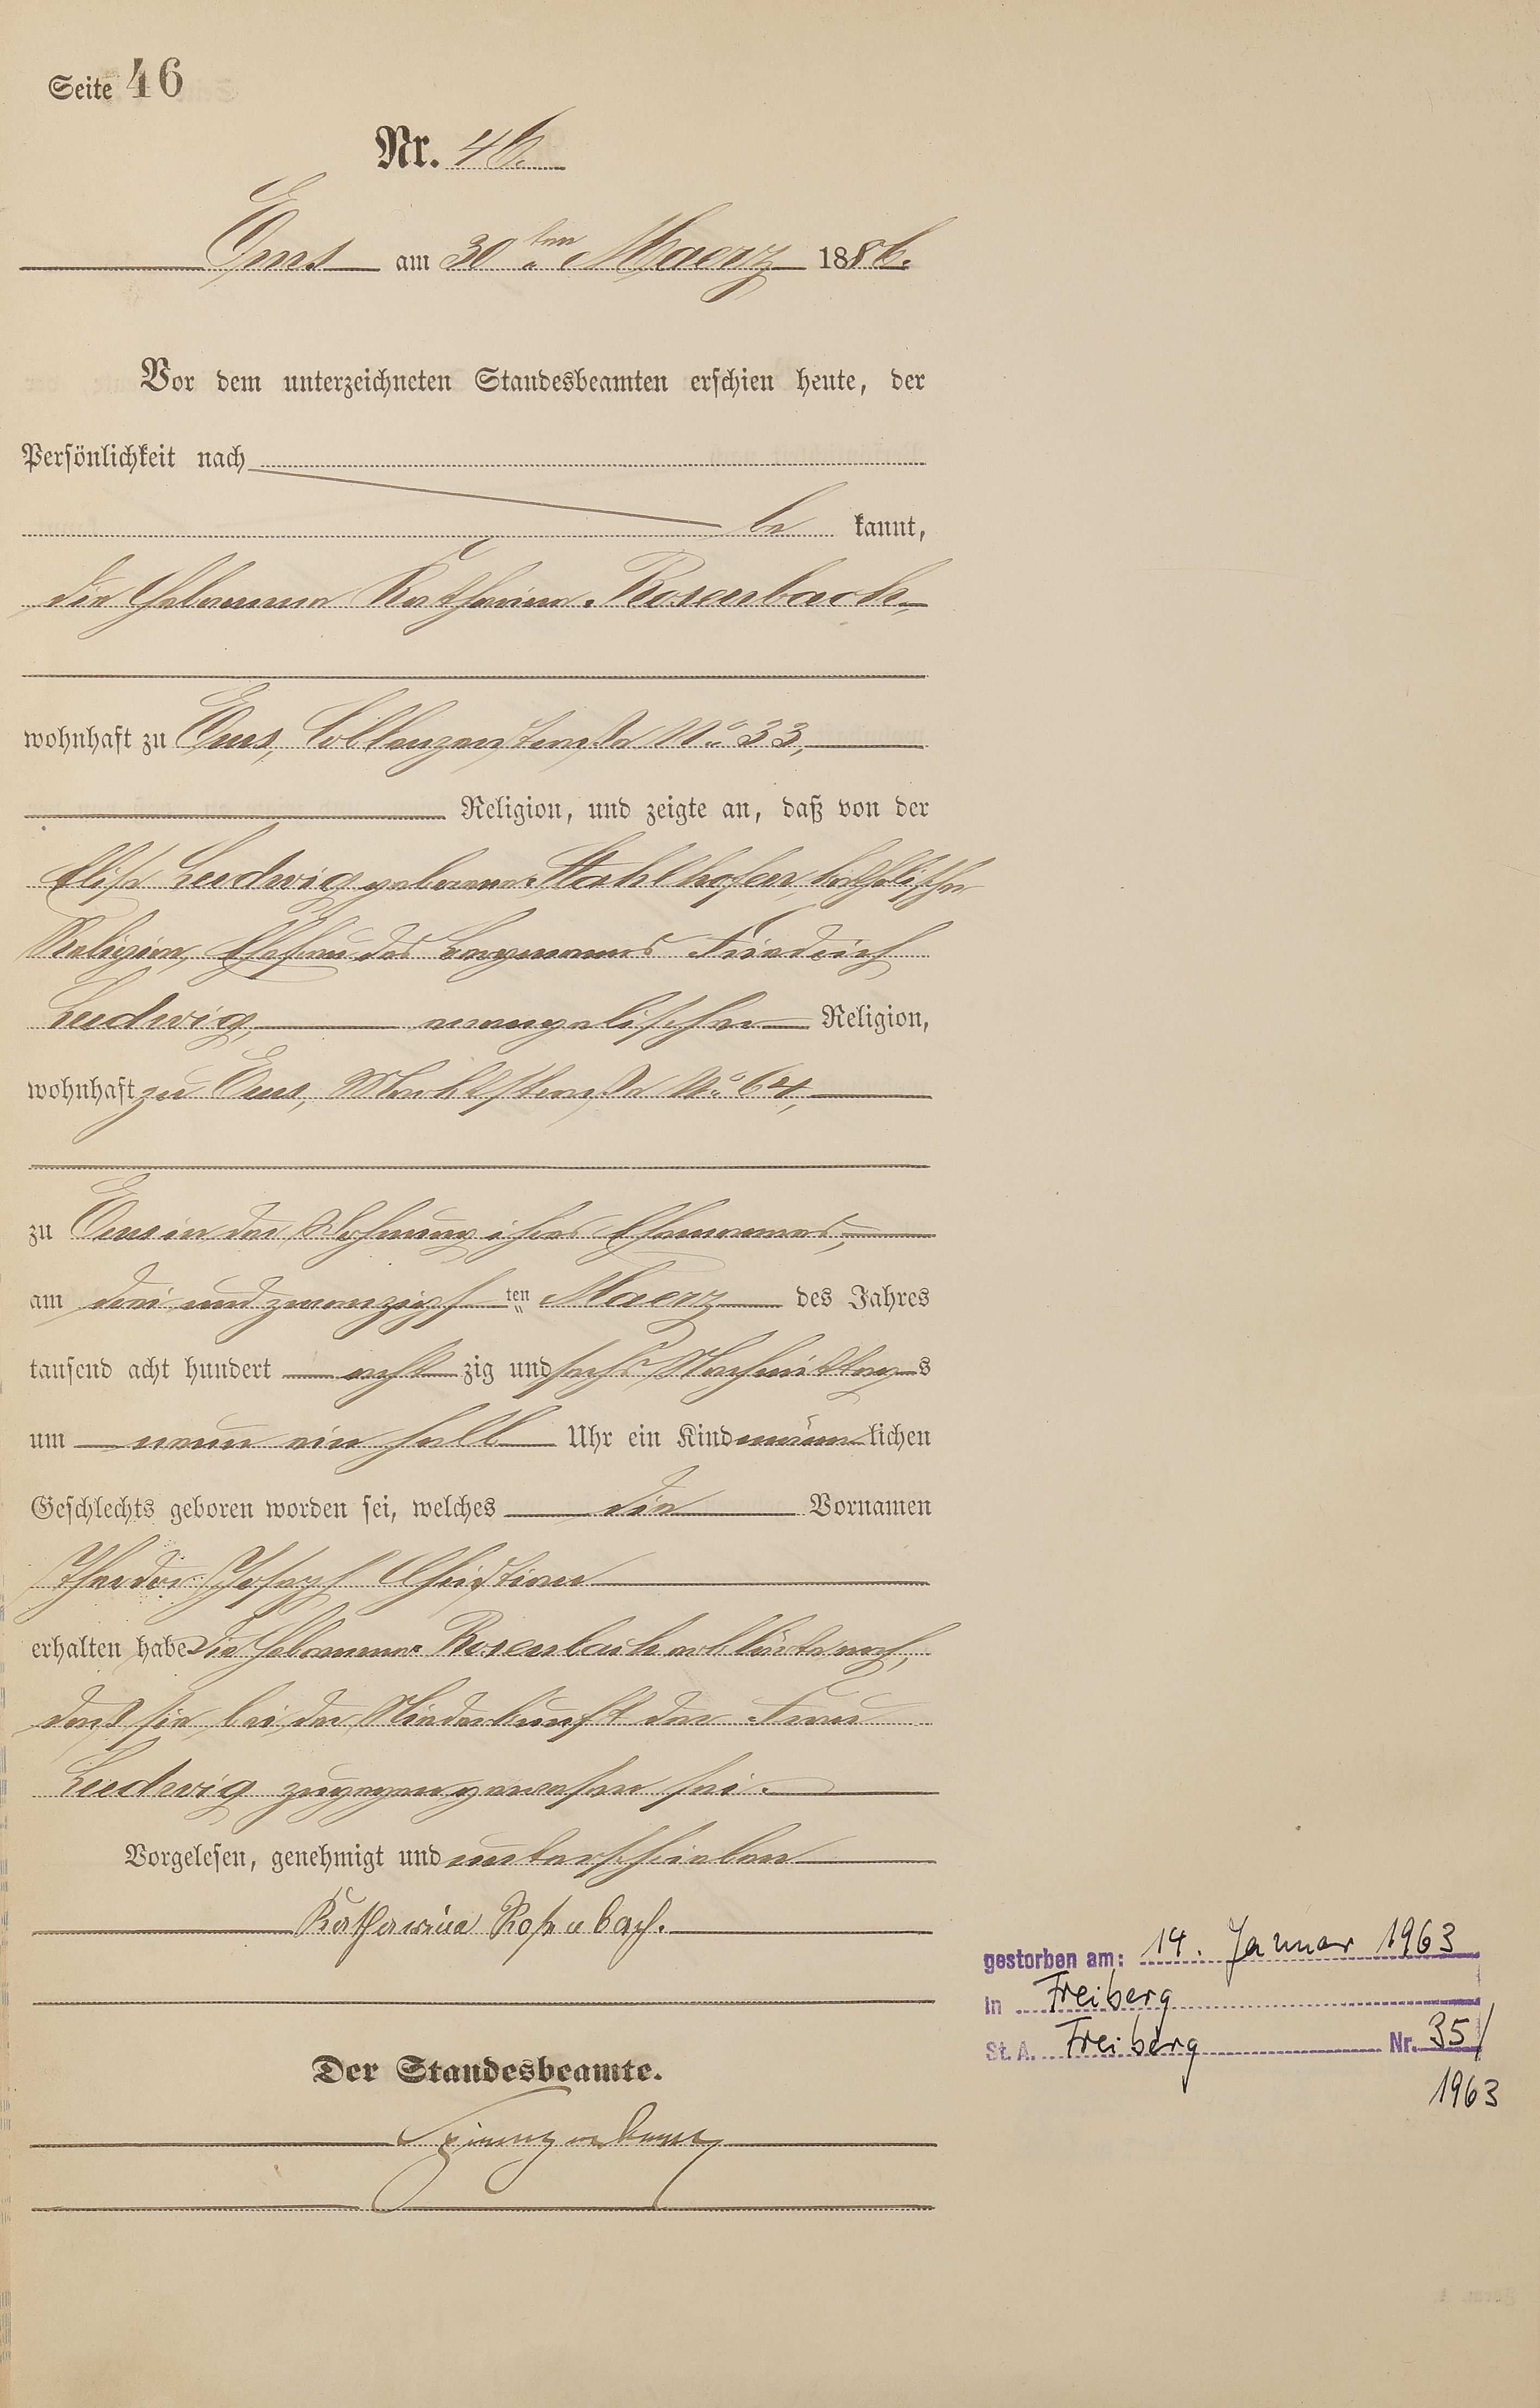 Seite 46
Nr. 46.
Ems am 30ten Maerz 1886.
Vor dem unterzeichneten Standesbeamten erschien heute, der
Persönlichkeit nach
be kannt,
die Hebamme Katharina Rosenbach,
wohnhaft zu Ems, Coblenzerstraße No 33,
Religion, und zeigte an, daß von der
Elise Ludwig geborene Stahlhofen, katholischer
Religion, Ehefrau des Bergmanns Friedrich
Ludwig, evangelischer Religion,
wohnhaft zu Ems, Marktstraße No 64,
zu Ems in der Wohnung ihres Ehemannes,
am drei und zwanzigsten Maerz des Jahres
tausend acht hundert acht zig und sechs Nachmittags
um neun ein halb Uhr ein Kind männlichen
Geschlechts geboren worden sei, welches die Vornamen
Theodor Joseph Christian
erhalten habe Die Hebamme Rosenbach erklärte noch,
daß sie bei der Niederkunft der Frau
Ludwig zugegen gewesen sei.
Vorgelesen, genehmigt und unterschrieben
Katharina Rosenbach.
Der Standesbeamte.
gestorben am: 14. Januar 1963
in Freiberg
St. A. Freiberg Nr. 35/
1963